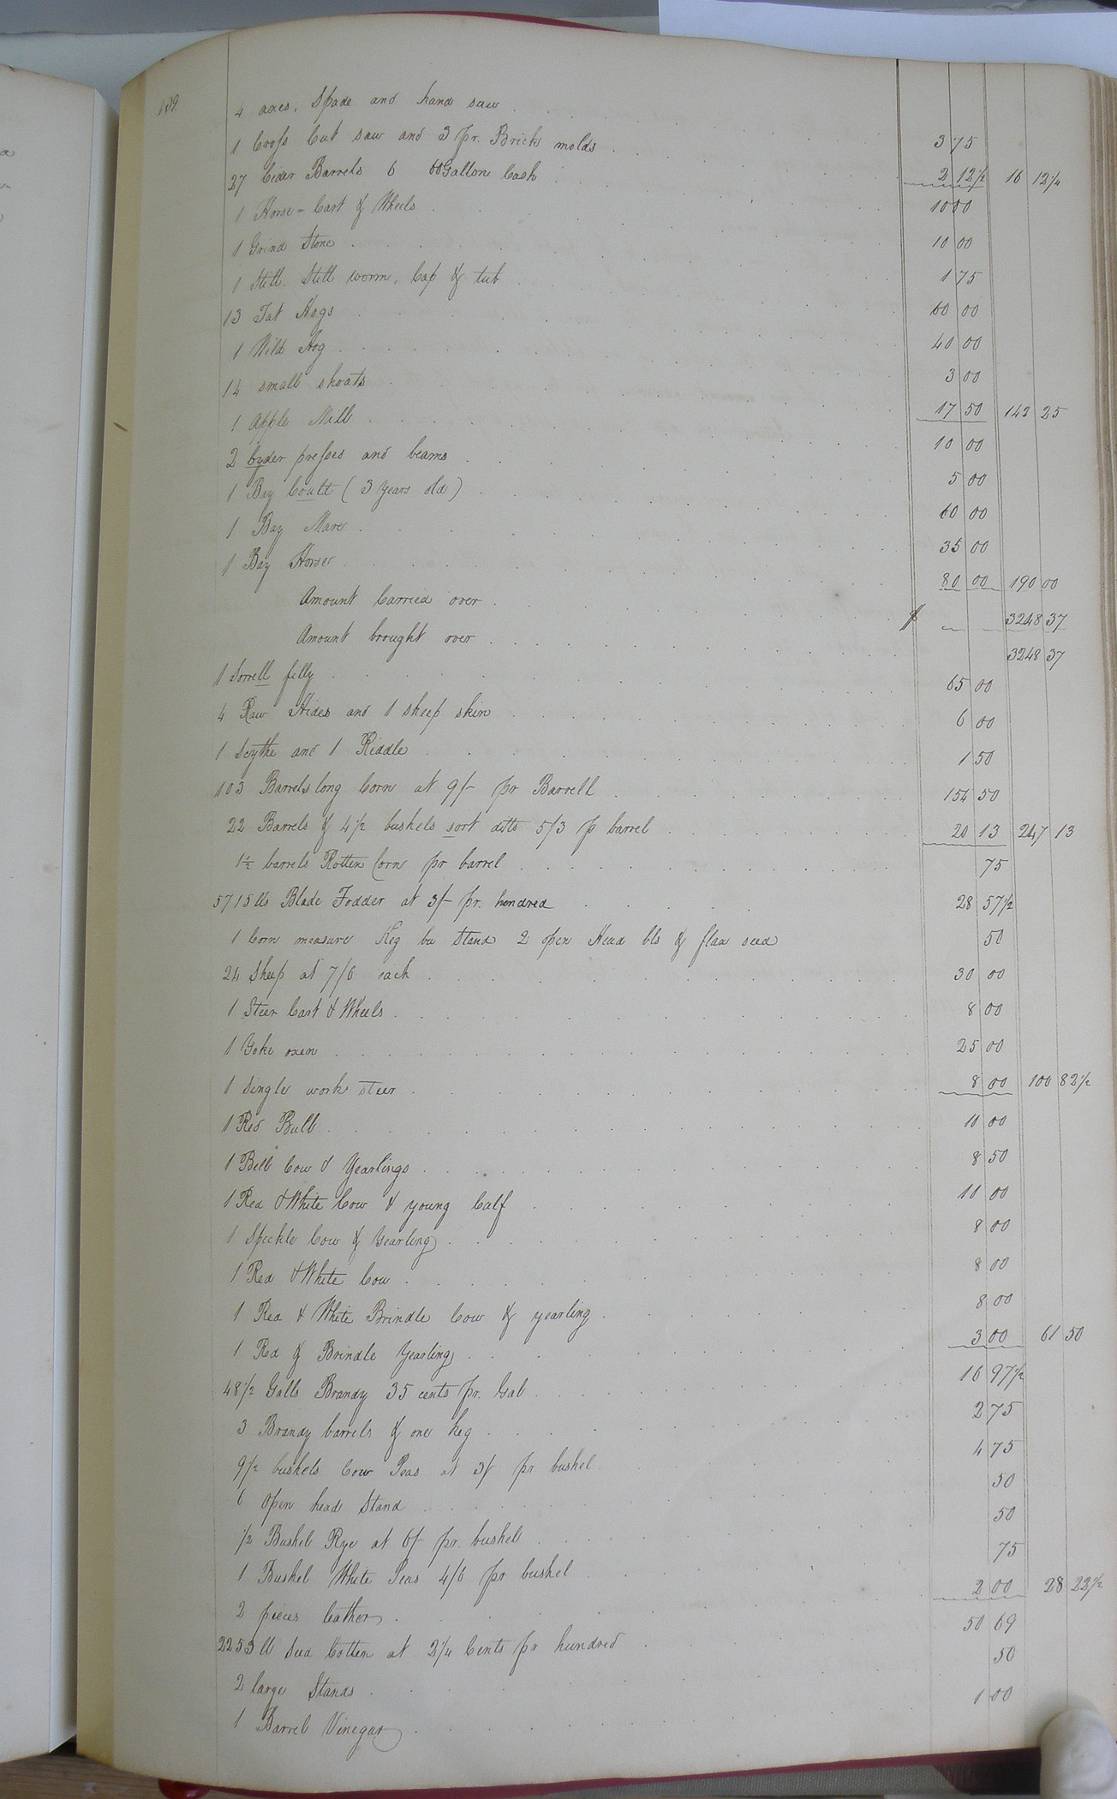 139
4 axes, Spade and hand saw 3 75
1 Croſs Cut saw and 3 pr. Brick molds 2 12½ 16 12½
27 Cider Barrels 6 60 Gallone Cask 10 00
1 Horse-Cart & Wheels 10 00
1 Grind Stone 1 75
1 Still. Still worm, Cap & tub 60 00
13 Fat Hogs 40 00
1 Wild Hog 3 00
14 small shoats 17 50 142 25
1 Apple Mill 10 00
2 Cyder preſses and beams 5 00
1 Bay Coult (3 years old) 60 00
1 Bay Mare 35 00
1 Bay Horse 80 00 190 00
Amount Carried over $ 3248 37
Amount brought over 3248 37
1 Sorrell filly 65 00
4 Raw Hides and 1 sheep skin 6 00
1 Scythe and 1 Riddle 1 50
103 Barrels long Corn at 9/- pr Barrell 154 50
22 Barrels & 4½ bushels sort ditto 5/3 p barrel 20 13 247 13
1½ barrels Rotten Corn pr barrel 75
5715 lb Blade Fodder at 3/- pr. hundred 28 57½
1 Corn measure Keg bu Stand 2 open Head bls & flax seed 50
24 Sheep at 7/6 each 30 00
1 Steer Cart & Wheels 8 00
1 Yoke oxen 25 00
1 Single work steer 8 00 100 82½
1 Red Bull 11 00
1 Bell Cow & Yearlings 8 50
1 Red & White Cow & young Calf 11 00
1 Speckle Cow & Yearling 8 00
1 Red & White Cow 8 00
1 Red & White Brindle Cow & yearling 8 00
1 Red & Brindle Yearling 3 00 61 50
48½ Galls Brandy 35 cents pr. Gal 16 97½
3 Brandy barrels & one keg 2 75
9½ bushels Cow Peas at 3/ pr bushel 4 75
6 Open head Stand 50
½ Bushel Rye at 6/- pr. bushel 50
1 Bushel White Peas 4/6 pr bushel 75
2 pieces leather 2 00 28 22½
2253 lb Seed Cotton at 2¼ Cents pr hundred 50 69
2 large Stands 50
1 Barrel Vinegar 1 00